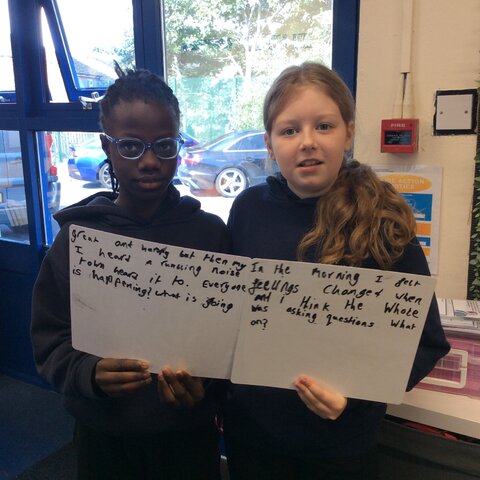 In the morning I felt
great ant but then my
feelings changed when
I heard a noise
and I think the whole
town heard it to. Everyone
was asking questions what
is happening? what is going
on?
FIRE